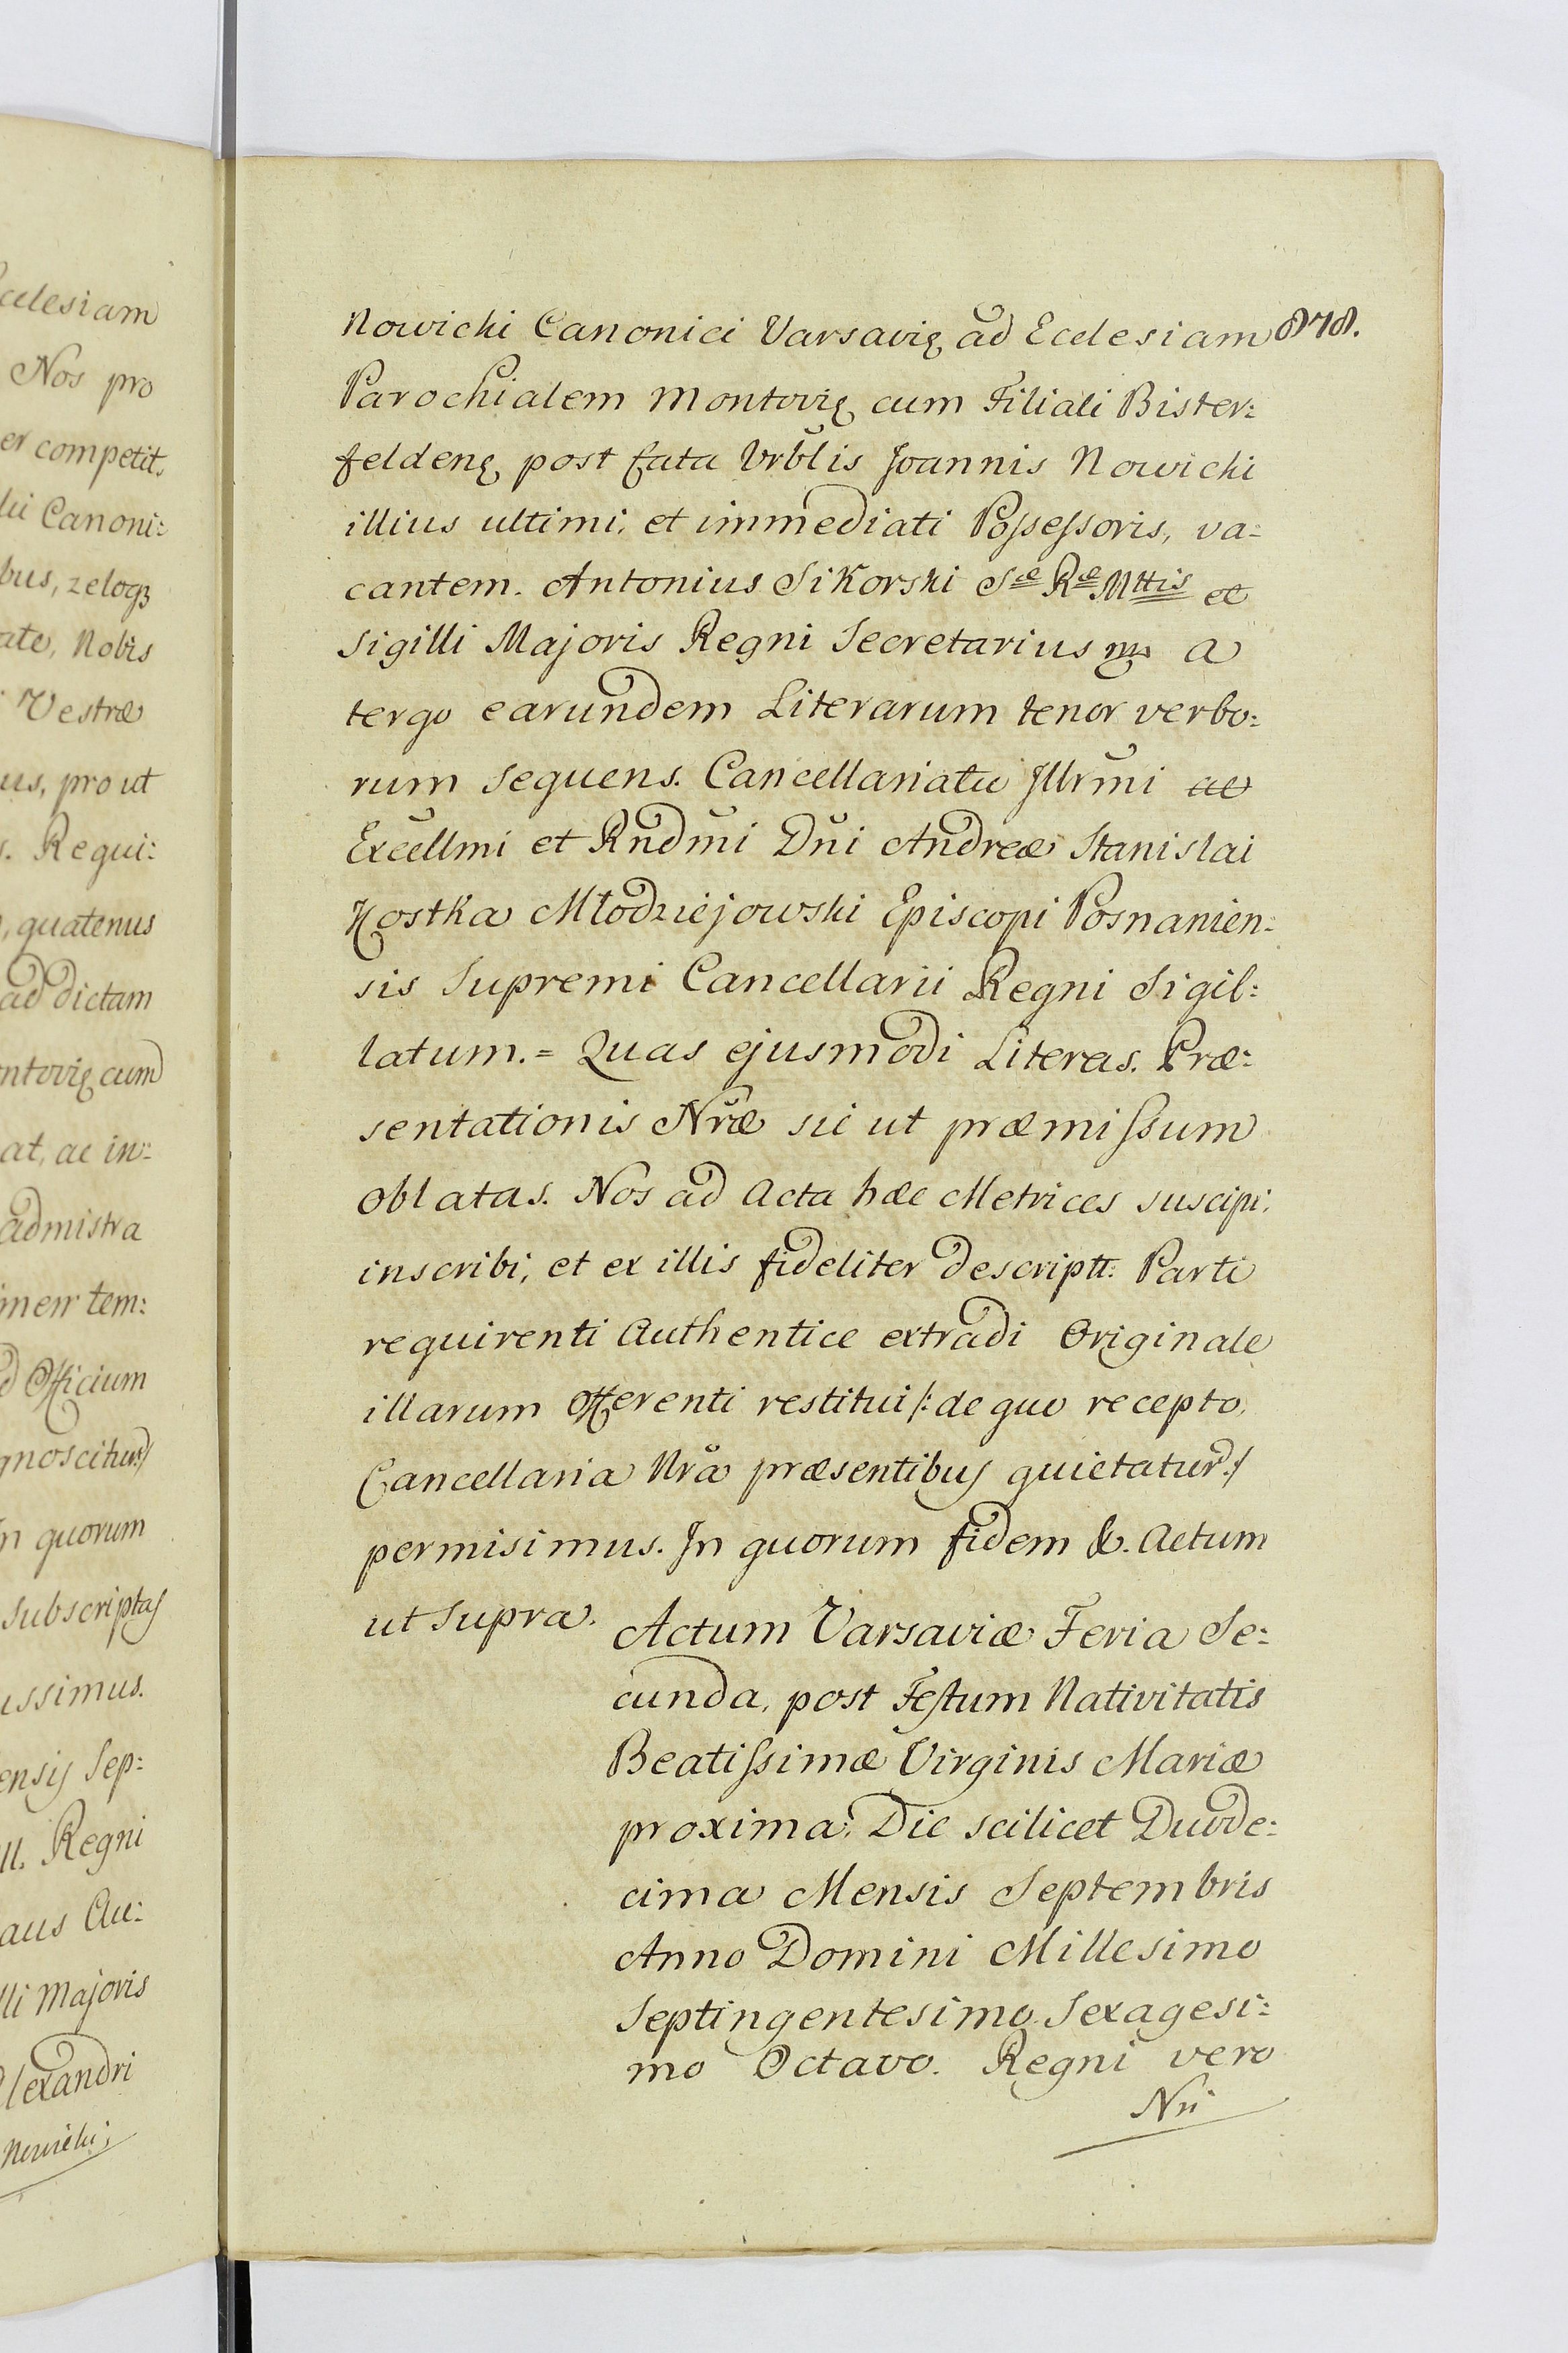 celesiam
Nos pro
er competit,
Canoni:
bus, zeloq3
ate, Nobis
Vestræ
us, prout
Requi:
, quatenus
ad dictam
ntovię cum
at, ac in:
admistra
men tem:
d Officium
gnoscitur:/
n quorum
subscriptas
ussimus.
ensis Sep:
ll. Regni
aus Au:
lli Majoris
lexandri
Nowichi
878.
Nowichi Canonici Varsavię ad Ecclesiam
Parochialem Montovię cum Filiali Bister:
feldenę post fata Vrblis Joannis Nowichi
illius ultimi, et immediati Possessoris, va:
cantem. Antonius Sikorski Sæ Ræ Mttis et
Sigilli Majoris Regni Secretarius mp A
tergo earundem Literarum tenor verbo:
rum sequens. Cancellariatu Jllrmi ac
Excellmi et Rndmi Dni Andreæ Stanislai
Kostka Młodziejowski Episcopi Posnanien:
sis Supremi Cancellarii Regni Sigil:
latum. = Quas ejusmodi Literas. Præ:
sentationis Nræ sic ut præmissum
oblatas. Nos ad Acta hæc Metrices suscipi,
inscribi, et ex illis fideliter descriptt: Parti
requirenti Authentice extradi Originale
illarum Offerenti restitui /: de quo recepto,
Cancellaria Nra præsentibus quietatur :/
permisimus. Jn quorum fidem &. Actum
ut Supra.
Actum Varsaviæ Feria Se:
cunda, post Festum Nativitatis
Beatissimæ Virginis Mariæ
proxima. Die scilicet Duode:
cima Mensis Septembris
Anno Domini Millesimo
Septingentesimo Sexagesi:
mo Octavo. Regni vero
Nri